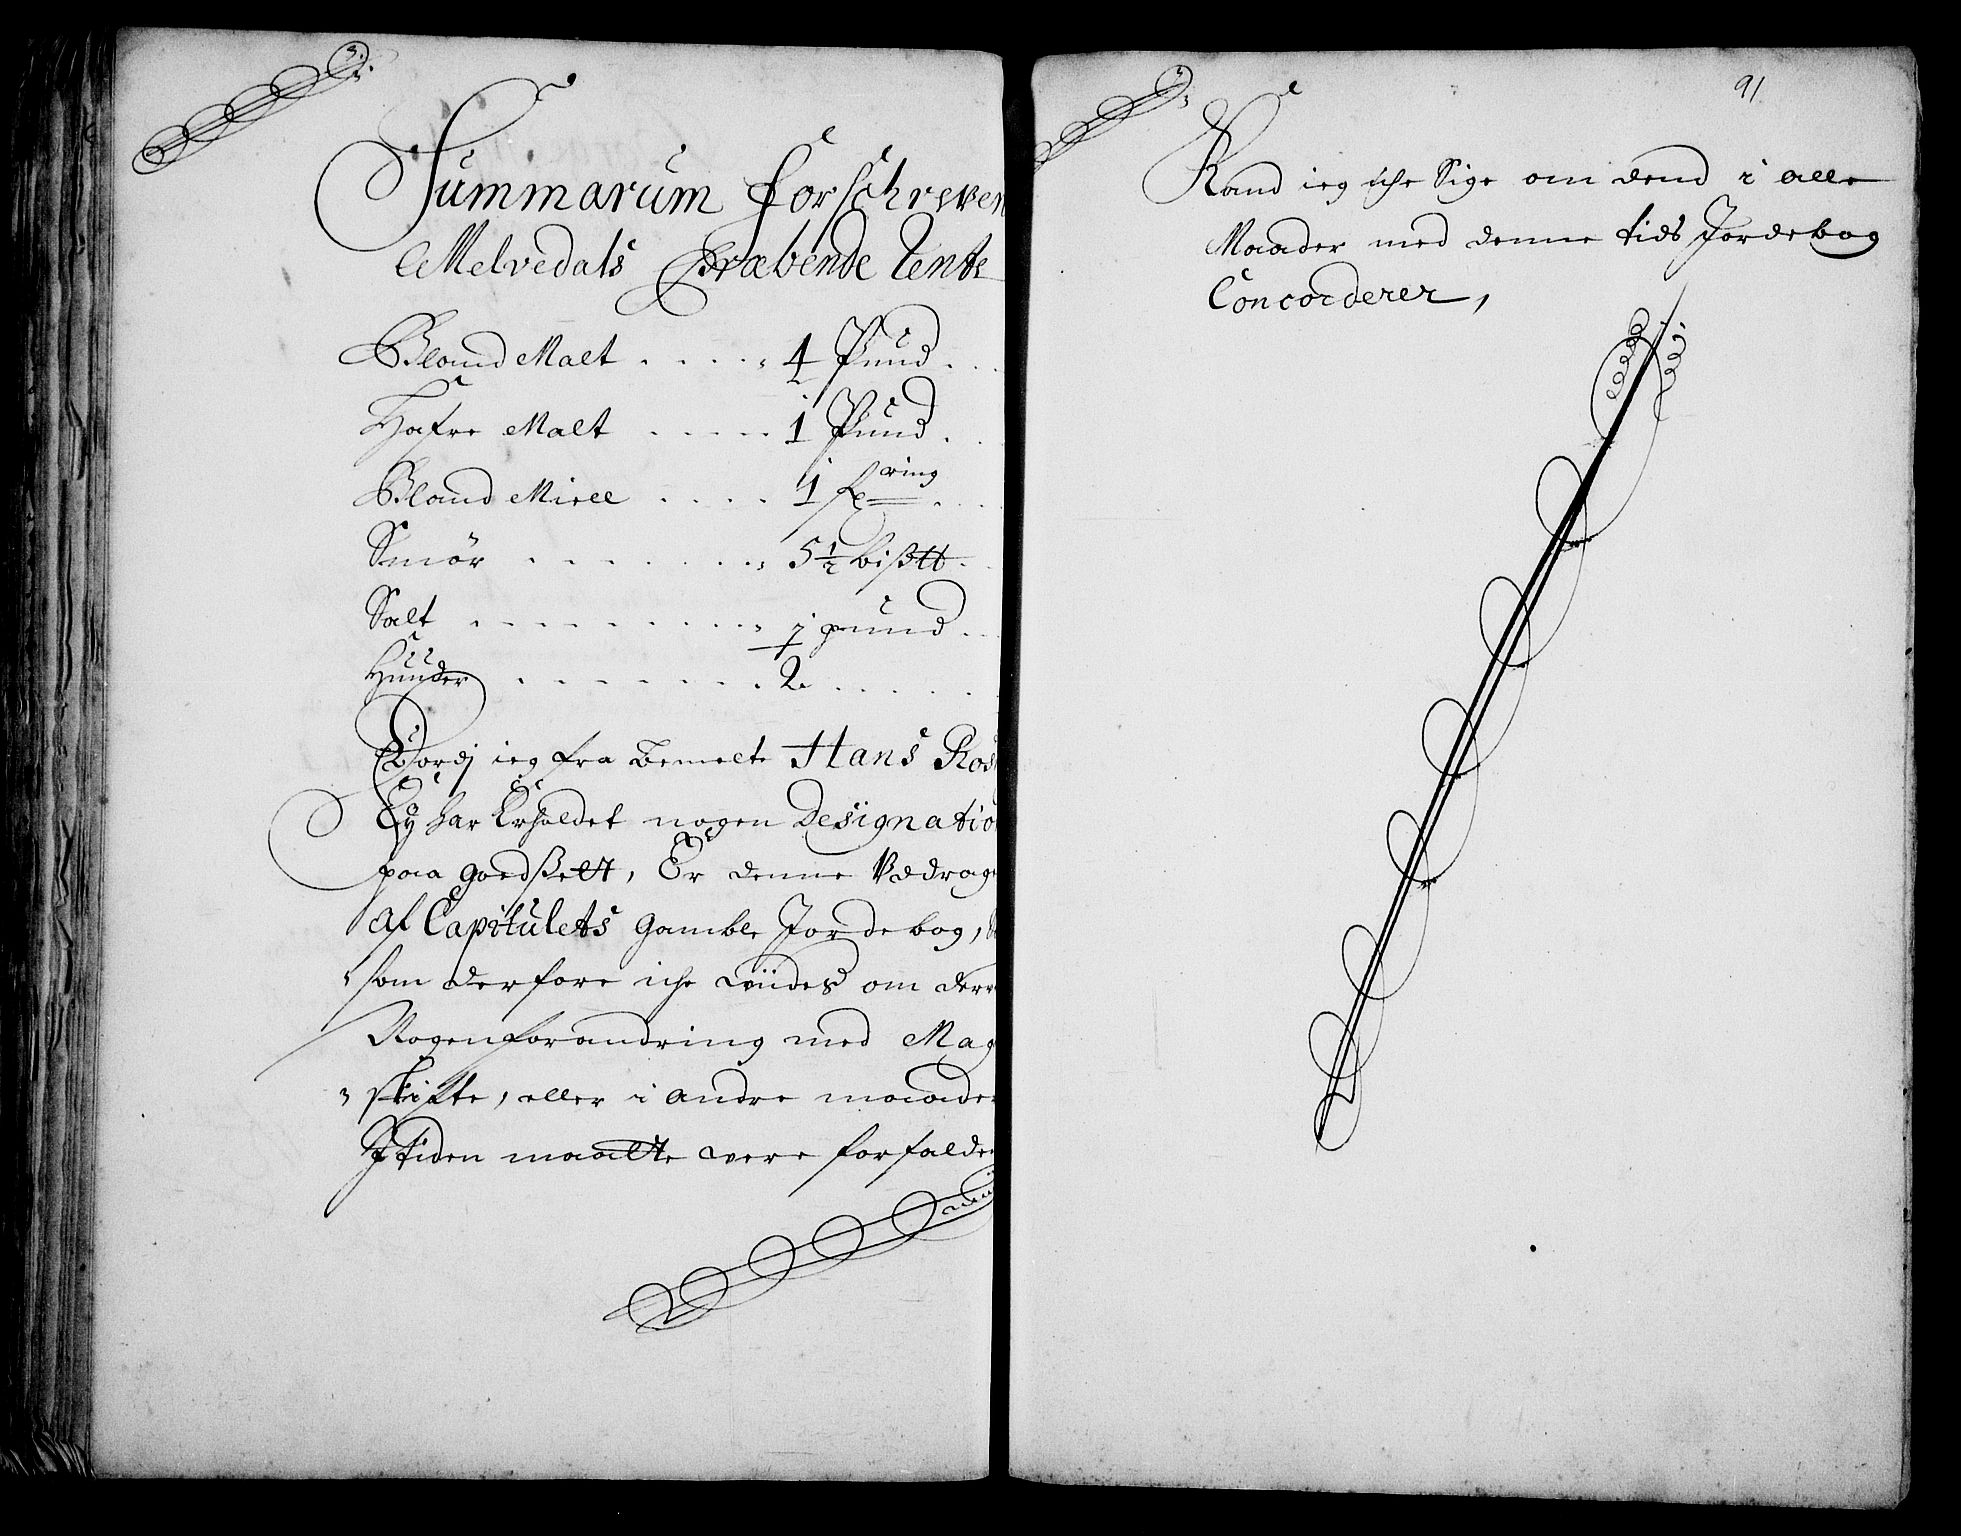 Summarum forschreven
Melvedals Præbende Rente
Bland Malt . . . . 4 Pund . .
Hafre Malt . . . . 1 Pund . .
Bland Miell . . . . 1 færing . .
Smør . . . . . . 5 1/2 bißtt .
Salt . . . . . . . 1 pund . .
Huuder . . . . . . 2 . . . .
Efordj ieg fra bemelte Hans Ros
Ey har Erholdet nogen Designation
paa goedßett, Er denne Vddrag
af Capitulets gamble Jordebog,
som derfore iche wiides om der
Nogen forandring med Mag
skifte, eller i andre maader
J tiden maatte were forfalden
91
Kand ieg iche Sige om dend i alle
Maader med denne tids Jordebog
Concorderer,